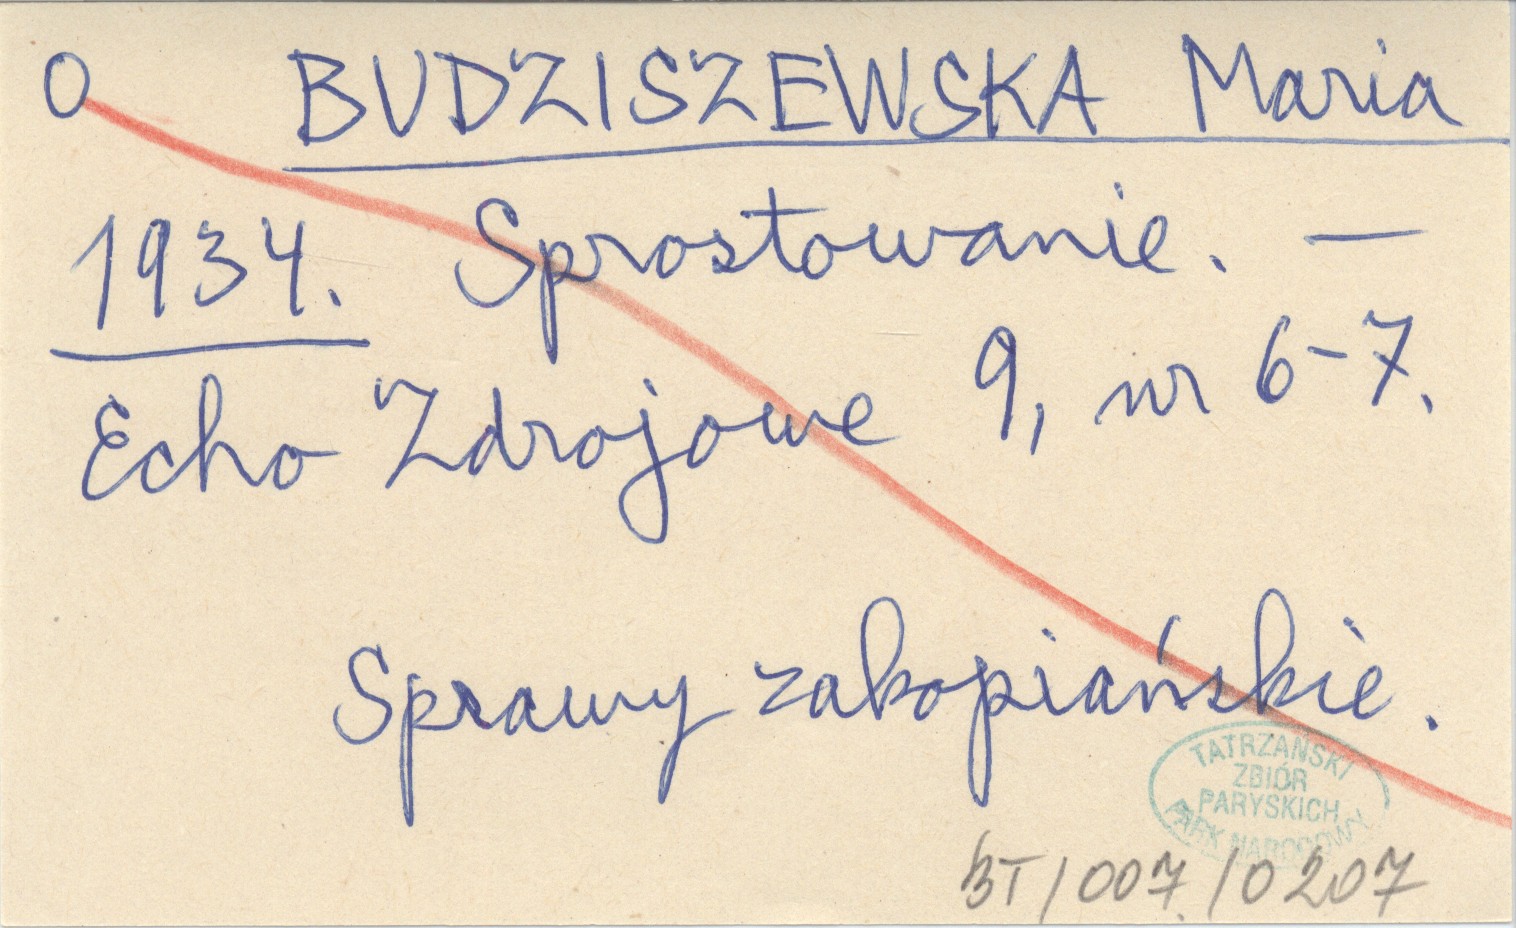 O BUDZISZEWSKA Maria
1934. Sprostowanie. —
Echo Zdrojowe 9, nr 6-7.
Sprawy zakopiańskie.
TATRZAŃSKI
ZBIÓR
PARYSKICH
PARK NARODOWY
BT/007/0207